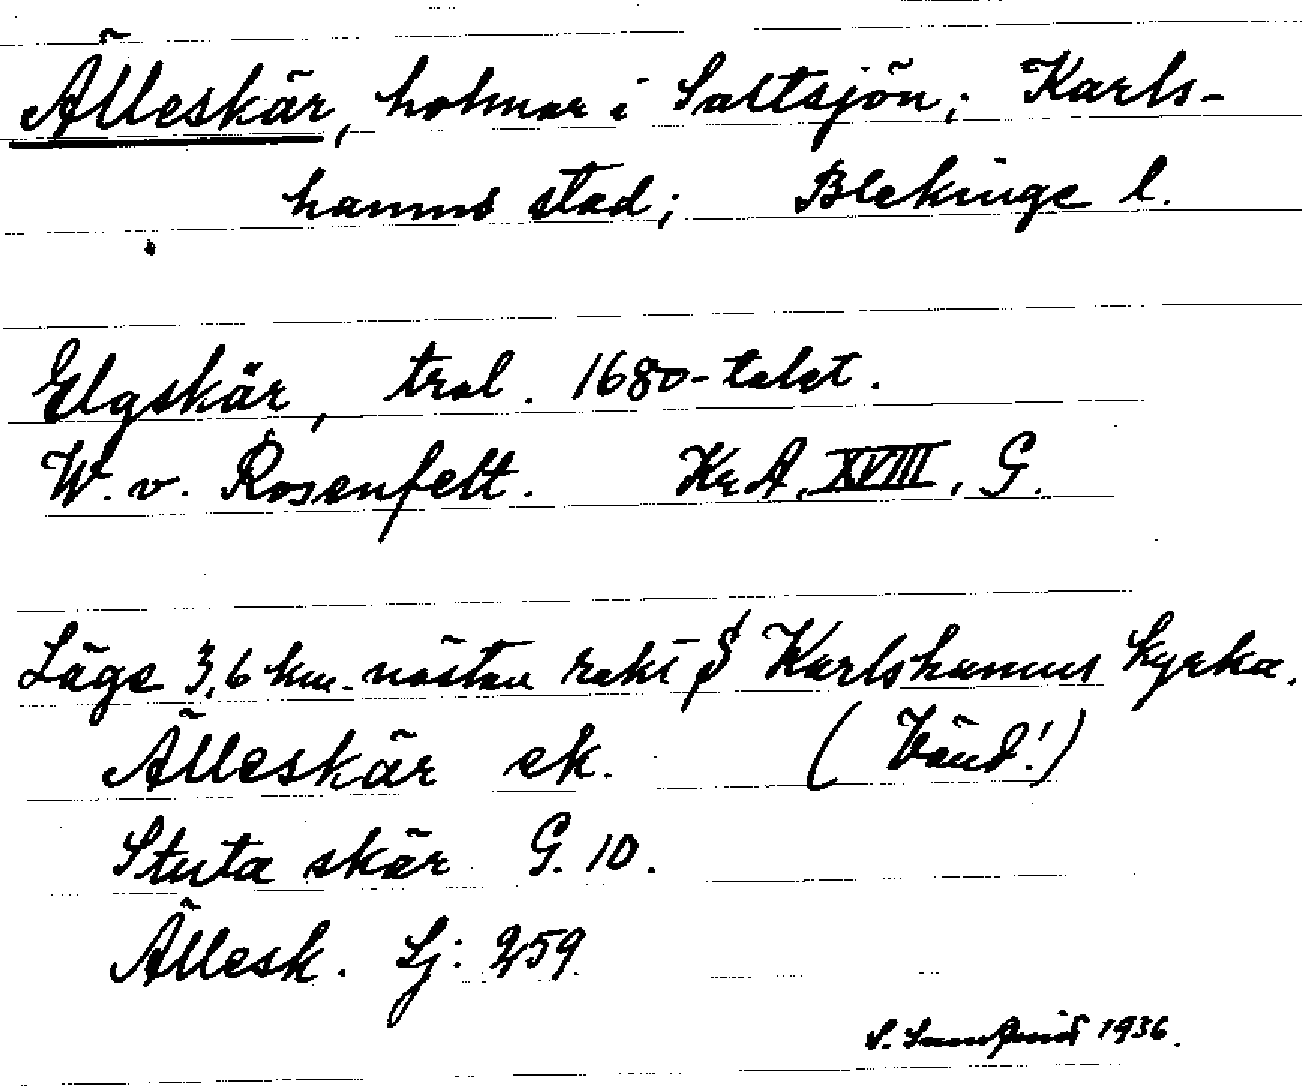 Älleskär, holmar i Saltsjön; Karls-
hamns stad; Blekinge l.
Elgskär, trol. 1680-talet.
W. v. Rosenfelt. Kr A, XVIII, G.
Läge 3,6 km. nästan rakt S Karlshamns kyrka.
Älleskär ek. (Vänd!)
Stuta skär G. 10.
Ällesk. Sj: 259
S. 1936.